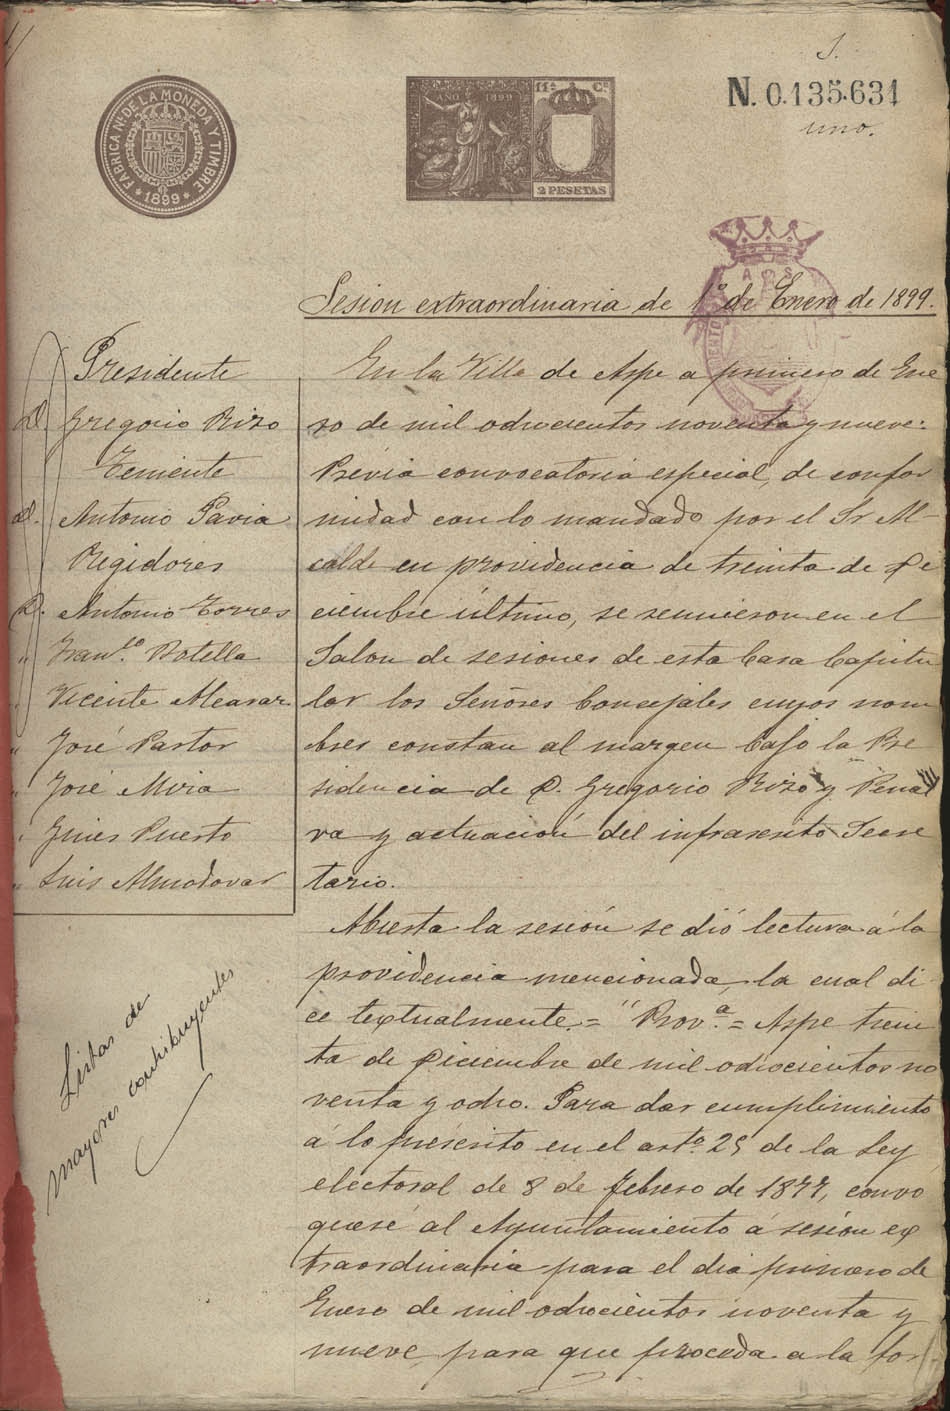 1.
N. 0.135.631
uno.
FABRICA NL. DE LA MONEDA Y TIMBRE
* 1899 *
AÑO 1899
11ª Cª
2 PESETAS
Sesion extraordinaria de 1º de Enero de 1899.
Presidente
D. Gregorio Rizo
Teniente
D. Antonio Pavia
Regidores
D. Antonio Torres
" Franco. Botella
" Vicente Alcaraz
" José Pastor
" José Mira
" Gines Puerto
" Luis Almodovar
Listas de
mayores contribuyentes
En la Villa de Aspe a primero de Ene
ro de mil ochocientos noventa y nueve:
Prévia convocatoria especial, de confor
midad con lo mandado por el Sr Al-
calde en providencia de treinta de Di
ciembre último, se reunieron en el
Salon de sesiones de esta Casa Capitu
lar los Señores Concejales cuyos nom
bres constan al margen bajo la Pre
sidencia de D. Gregorio Rizo y Penal
va y actuación del infrascrito Secre
tario.
Abierta la sesión se dió lectura á la
providencia mencionada, la cual di
ce textualmente. = "Prov.ª = Aspe trein
ta de Diciembre de mil ochocientos no
venta y ocho. Para dar cumplimiento
á lo préscrito en el artº. 25 de la Ley
electoral de 8 de Febrero de 1877, convo
quese al Ayuntamiento á sesión ex
traordinaria para el dia primero de
Enero de mil ochocientos noventa y
nueve, para que proceda a la for-